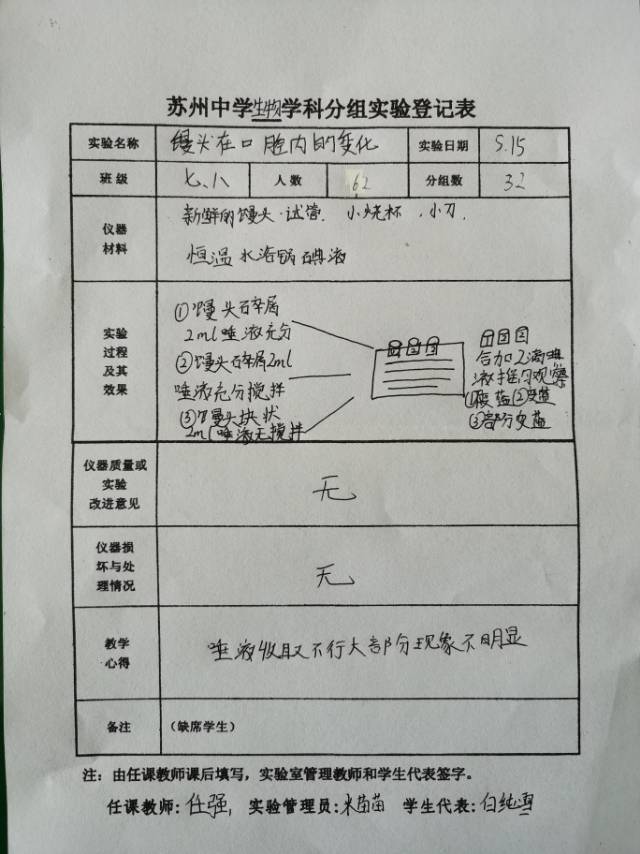 苏州中学生物学科分组实验登记表
实验名称 馒头在口腔内的变化 实验日期 5.15
班级 七、八 人数 62 分组数 32
仪器材料 新鲜的馒头.试管.小烧杯.小刀.
恒温水浴锅 碘液
实验过程及其效果
①馒头碎屑
2ml唾液充分
②馒头碎屑2ml
唾液充分搅拌
③馒头块状
2ml唾液无搅拌
① ② ③
1 2 3
各加2滴碘
液摇匀观察
③部分变蓝
仪器质量或实验改进意见 无
仪器损坏与处理情况 无
教学心得 唾液收取不行大部分现象不明显
备注 (缺席学生)
注：由任课教师课后填写，实验室管理教师和学生代表签字。
任课教师：任强， 实验管理员：米苗苗 学生代表：白纯雪